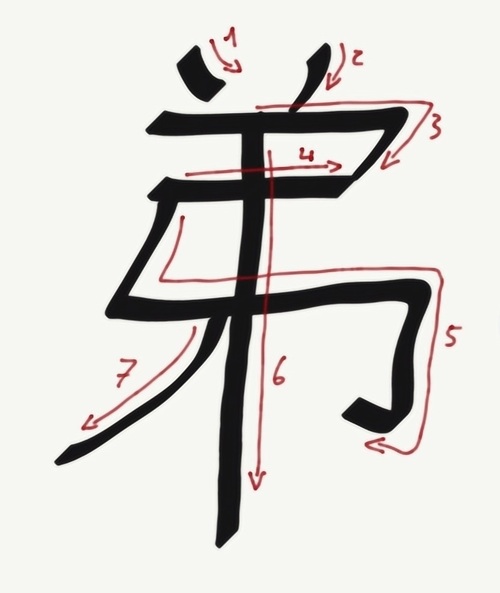 弟
1
2
3
4
5
6
7